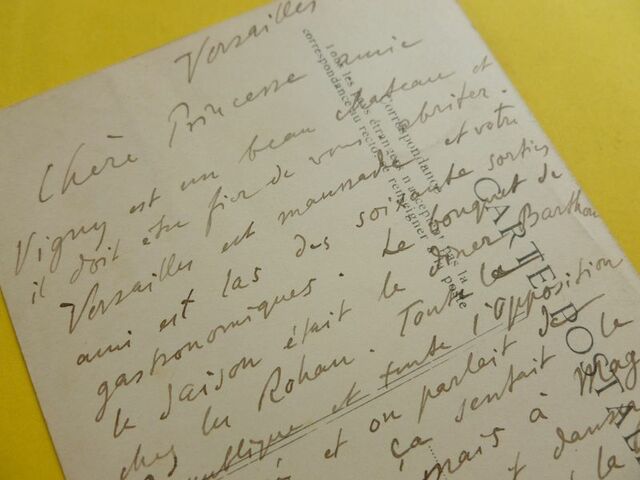 Versailles
Chère Princesse amie
Vigny est un beau chateau et
il doit être fier de vous abriter.
Versailles est maussade et votre
ami est las des soixante sorties
gastronomiques. Le bouquet de
la saison était le diner Barthou
chez les Rohan. Toute la
République et toute l'Opposition
et on parlait de la
ça sentait le
mais à Mag
et dans
la
Tous les pays étrangers n'acceptent pas la
correspondance au recto se renseigner à la poste
Correspondance
CARTE POSTALE